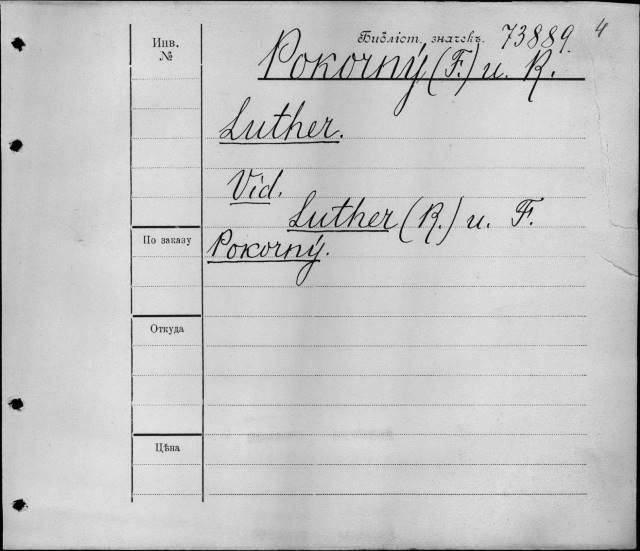 Инв. №
Библіот. значекъ. 73889. 4
Pokorný (F.) u. R.
Luther.
Vid.
Luther (R.) u. F.
Pokorný.
По заказу
Откуда
Цѣна